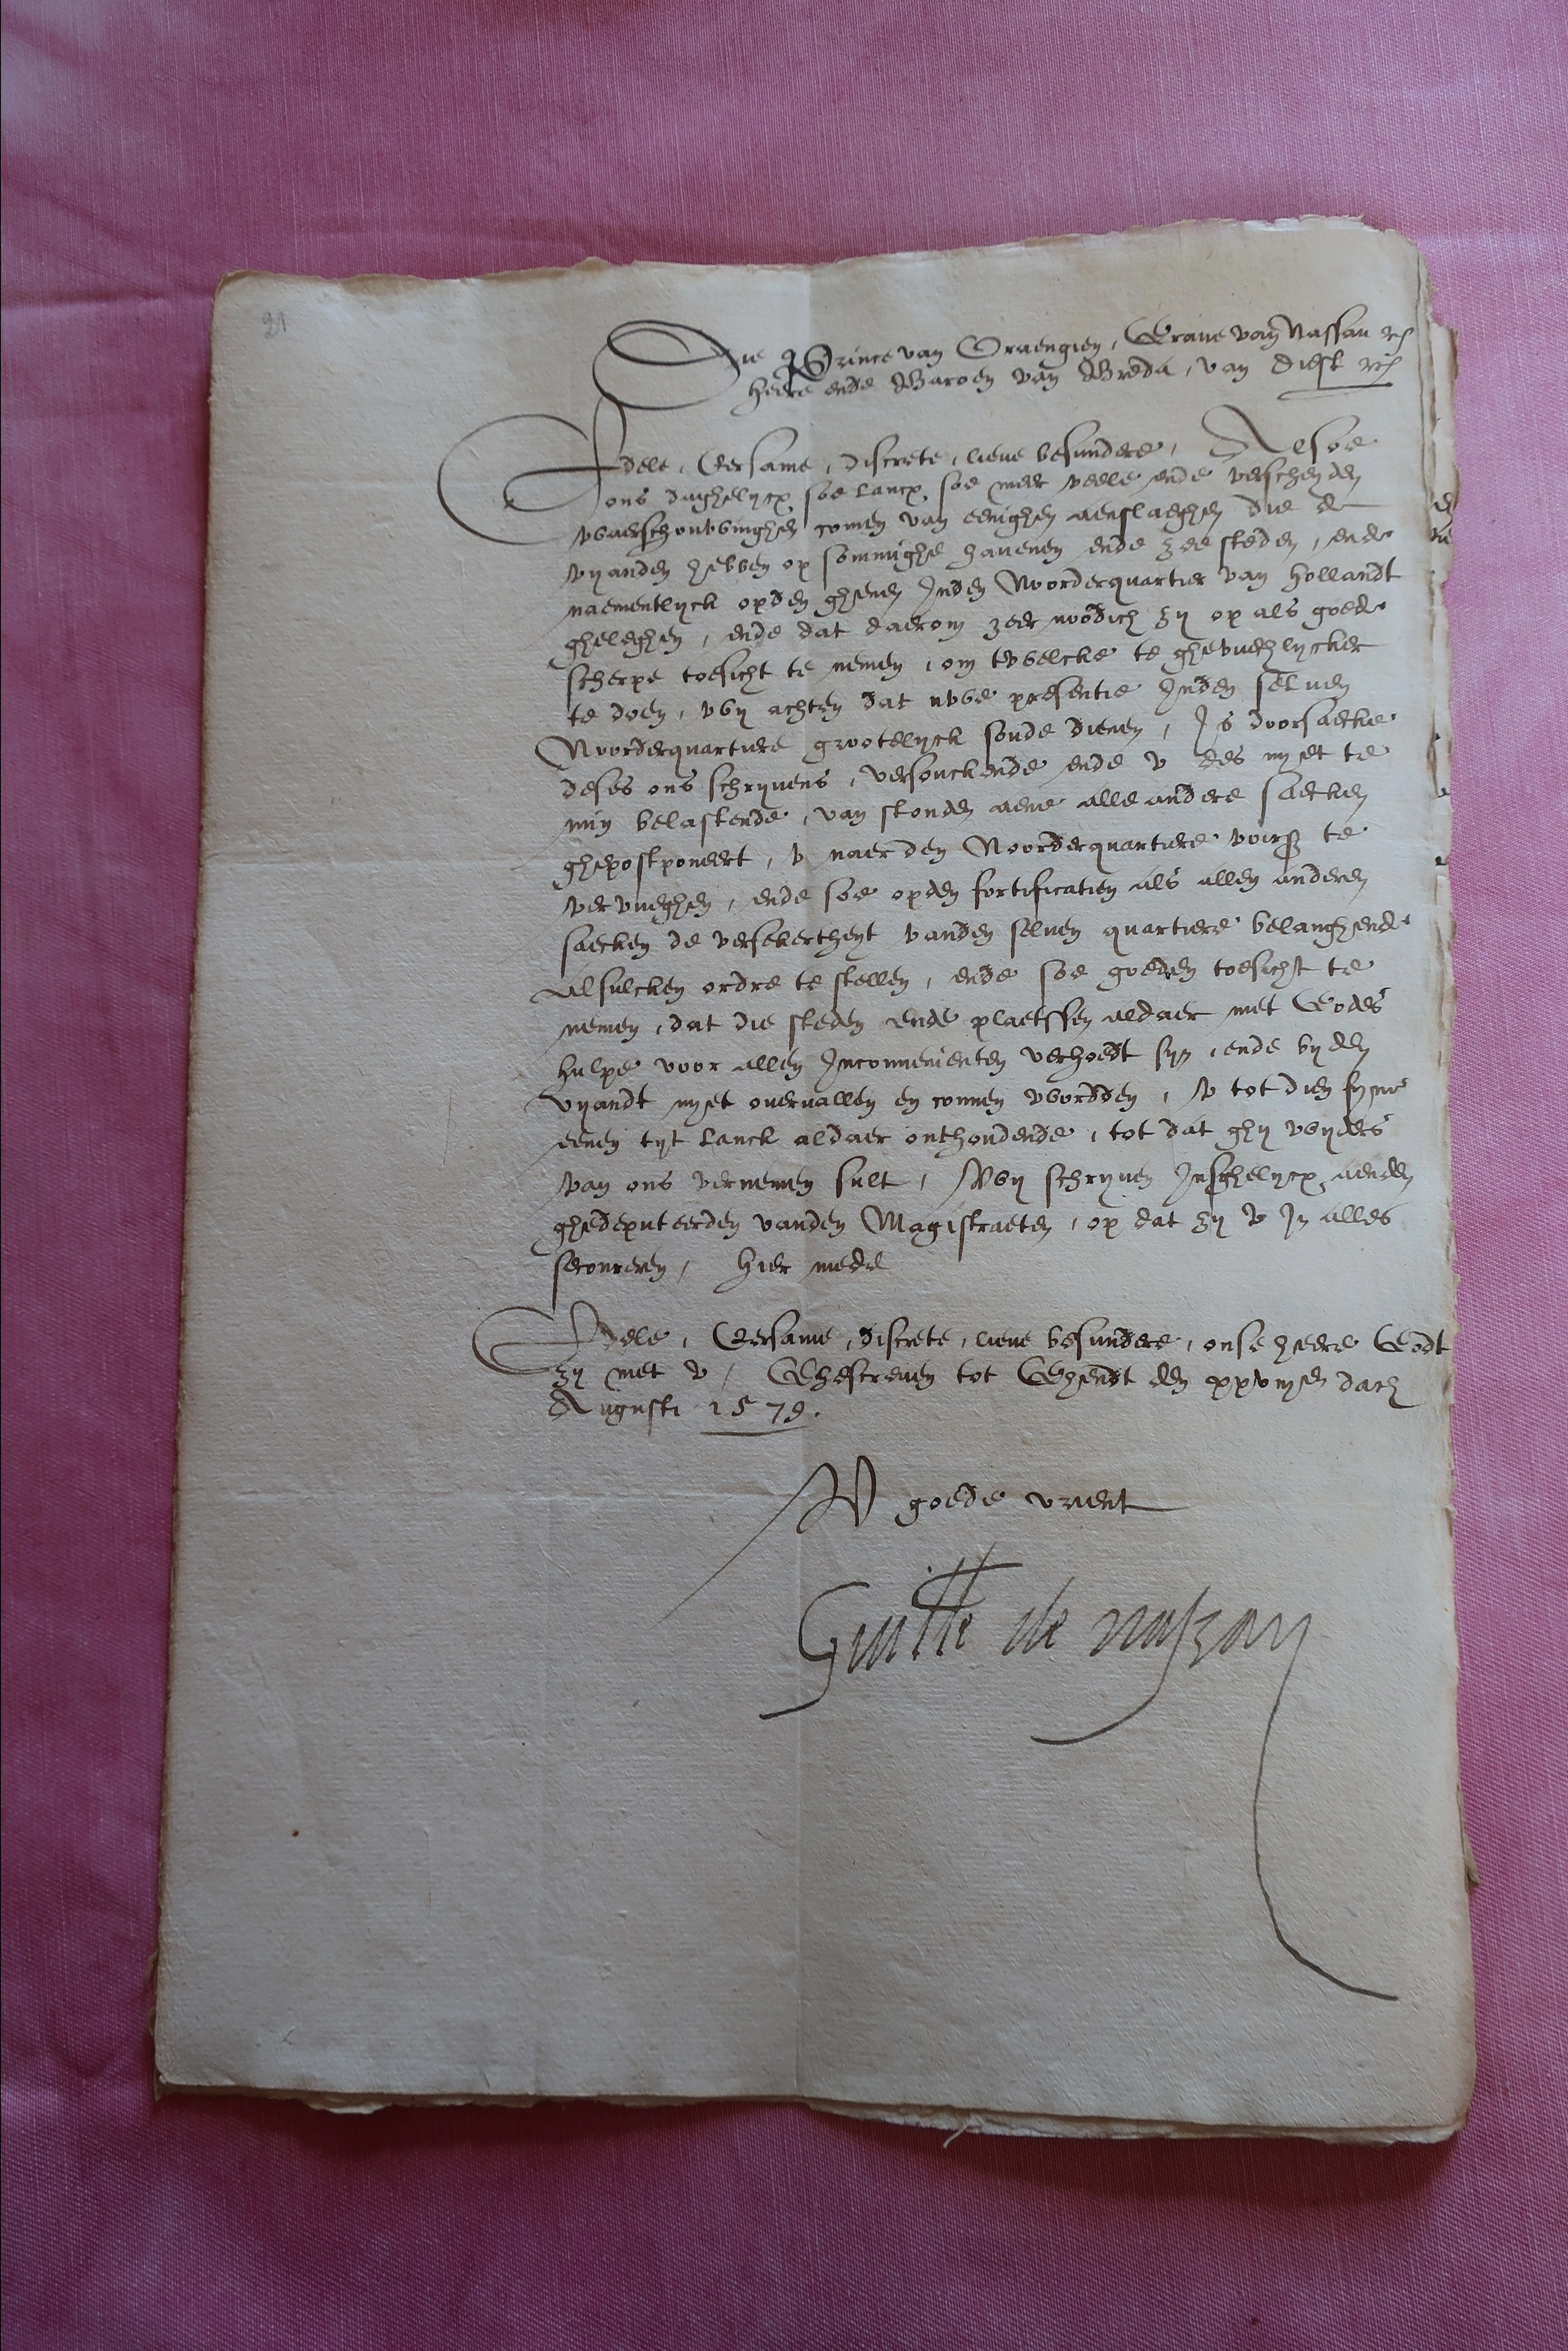 21
Die Prince van Oraengien, Grave van Nassau etc
heere ende Baroen van Breda, van Diest etc
Edele, Eersame, discrete, lieve besundere, Alsoe
ons daghelycx soe lancx soe meer veele ende verscheyden
waerschouwinghen comen van eenighen aenslaeghen die de
vyanden hebben op sommighe havenen ende zee steden, ende
naementlyck op den ghenen Inden Noorderquartier van Hollandt
gheleghen, ende dat daerom zeer noodich zy op als goede
scherpe toesicht te nemen, om twelcke te ghevuechlycker
te doen, wy achten dat uwe presentie Inden selven
Noorderquartiere grootelyck soude dienen, Is doorsaecke
deses ons schryvens, versouckende ende u des nyet te
min belastende, van stonden aene alle andere saecken
ghepostponeert, u naer den Noorderquartiere voirs te
vervueghen, ende soe op den fortificatien als allen anderen
saecken de versekertheyt vanden selven quartiere belanghende
alsulcken ordre te stellen, ende soe goeden toesicht te
nemen, dat die steden ende plaetssen aldaer met Godes
hulpe voor allen Inconvenienten verhoedt syn, ende by den
vyandt nyet overvallen en connen wordden, U tot dien fyne
eenen tyt lanck aldaer onthoudende, tot dat ghy wyders
van ons vernemen sult, Wy schryven Insghelycx aenden
ghedeputeerden vanden Magistraeten, op dat zy u In alles
secoureren, Hier mede
Edele, Eersame, discrete, lieve besundere, onse heere Godt
zy met u, Ghescreven tot Ghendt den xxvijen dach
Augusti 1579.
U goede vrient
Guille de nassau